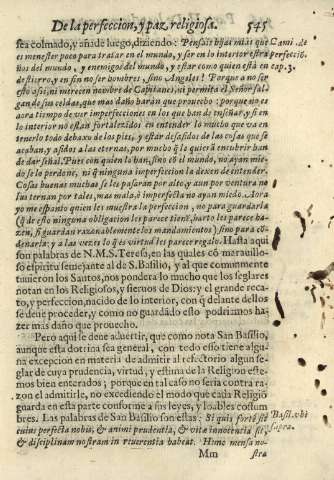 De la perfeccion, y paz religiosa. 545
sea colmado, y añade luego, diziendo: Pensais hijas mias que Cami. de
es menester poco para tratar en el mundo, y ser en lo interior estra perfeccio.
ños del mundo, y enemigos del mundo, y estar como quien está en cap. 3.
destierro, y en fin no ser hombres, sino Angeles? Porque a no ser
esto assi, ni merecen nombre de Capitanes, ni permita el Señor sal
gan de sus celdas, que mas daño harán que prouecho; porque no es
aora tiempo de ver imperfecciones en los que han de enseñar, y si en
lo interior no están fortalezidos en entender lo mucho que va en
tenerlo todo debaxo de los pies, y estar desasidos de las cosas que se
acaban, y asidos a las eternas, por mucho q̃ lo quierã encubrir han
de dar señal. Pues con quien lo han, sino cõ el mundo, no ayan mie-
do se lo perdone, ni q̃ ninguna imperfeccion la dexen de entender.
Cosas buenas muchas se les passaran por alto, y aun por ventura no
las ternan por tales, mas mala, ò imperfeta no ayan miedo. Aora
yo me espanto quien les muestra la perfeccion, no para guardarla
(q̃ de esto ninguna obligacion les parece tienẽ, harto les parece ha-
zen, si guardan razonablemente los mandamientos) sino para cõ-
denarla: y a las vezes lo q̃ es virtud les parece regalo. Hasta aqui
son palabras de N. M. S. Teresa, en las quales cõ marauillo-
so espiritu semejante al de S. Basilio, y al que comunmente
tuuieron los Santos, nos pondera lo mucho que los seglares
notan en los Religiosos, y sieruos de Dios; y el grande reca-
to, y perfeccion, nacido de lo interior, con q̃ delante dellos
se deue proceder, y como no guardado esto podriamos ha-
zer mas daño que prouecho.
Pero aqui le deue aduertir, que como nota San Basilio,
aunque esta dotrina sea general, con todo esso tiene algu
na excepcion en materia de admitir al refectorio algun se-
glar de cuya prudencia, virtud, y estima de la Religion este-
mos bien enterados; porque en tal caso no seria contra ra-
zon el admitirle, no excediendo el modo que cada Religiõ
guarda en esta parte conforme a sus leyes, y loables costum
bres. Las palabras de San Basilio son estas: Si quis fortè sit Basil. vbi
cuius perfecta nobis, & animi prudentia, & vitæ innocentia sit, supra.
& disciplinam nostram in reuerentia habeat. Hunc mensa no-
Mm stra